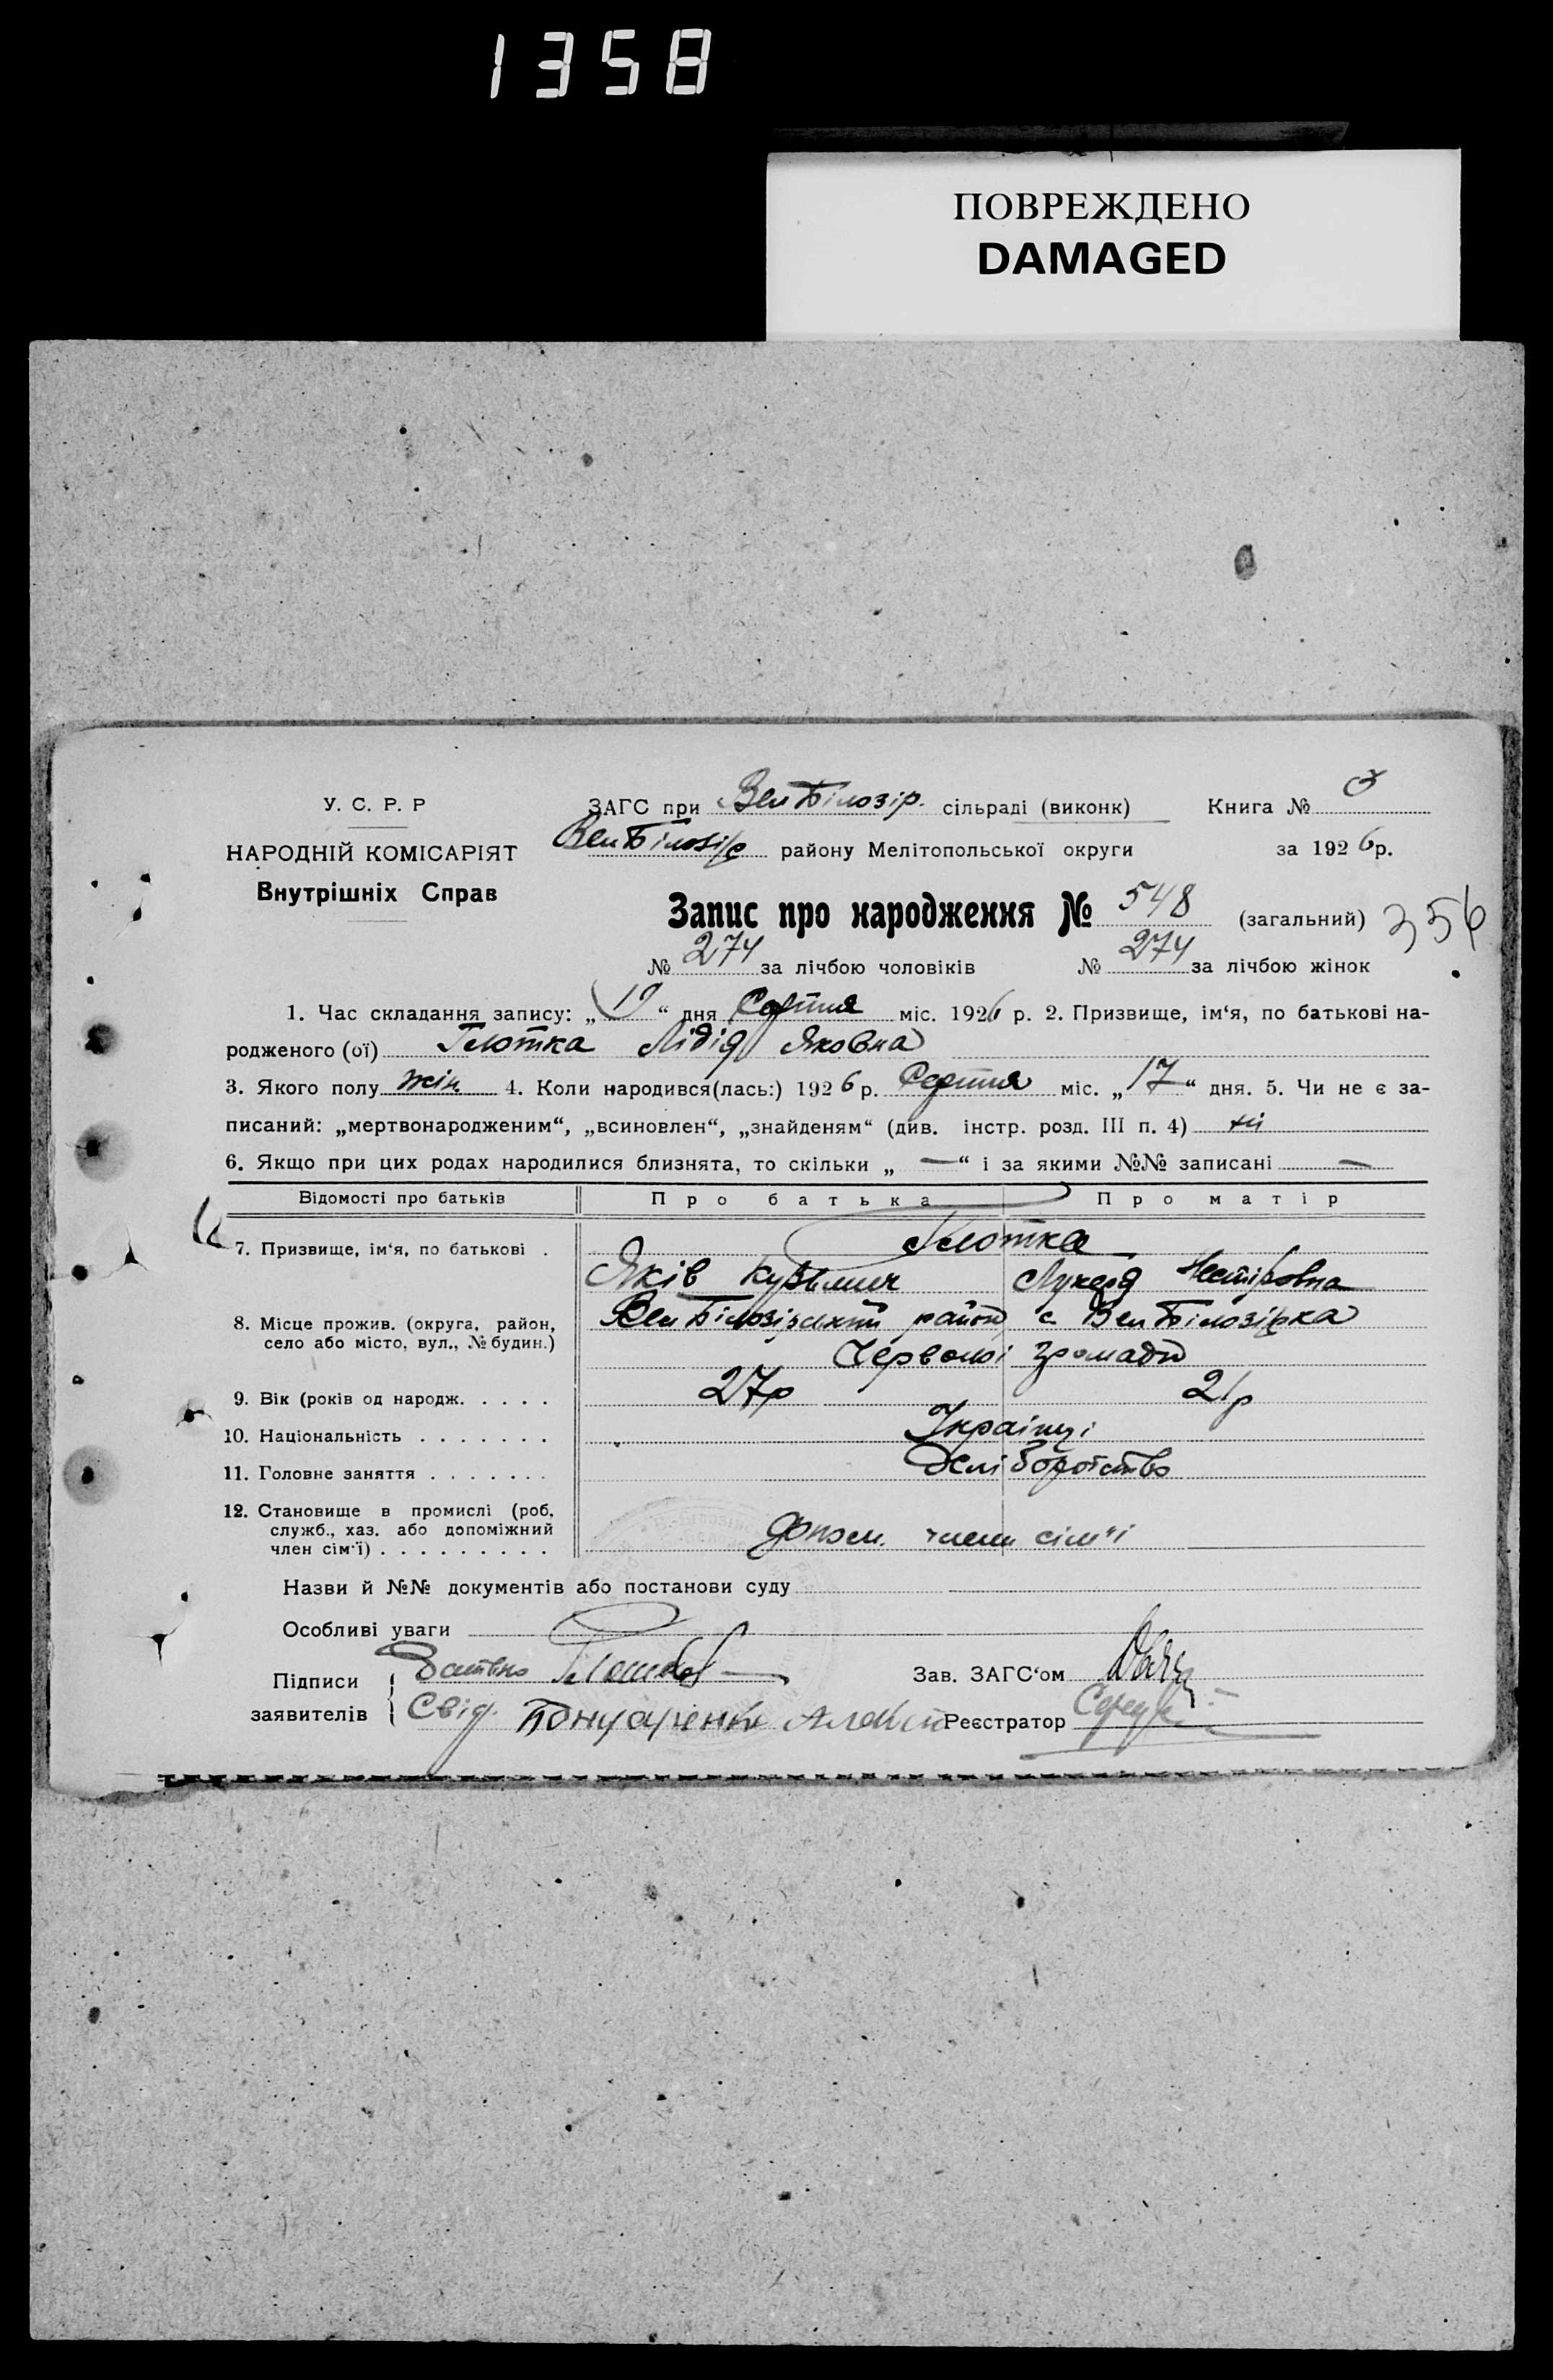 1358
ПОВРЕЖДЕНО
DAMAGED
У. С. Р. Р
НАРОДНІЙ КОМІСАРІЯТ
Внутрішніх Справ
ЗАГС при Вел Білозір. сільраді (виконк) Книга № 3
Вел Білозір району Мелітопольської округи за 1926 р.
Запис про народження № 548 (загальний) 356
№ 274 за лічбою чоловіків № 274 за лічбою жінок
1. Час складання запису: „19“ дня Серпня міс. 1926 р. 2. Призвище, ім‘я, по батькові на-
родженого (ої) Глотка Лідія Яковна
3. Якого полу жін 4. Коли народився(лась:) 1926 р. Серпня міс. „17“ дня. 5. Чи не є за-
писаний: „мертвонародженим“, „всиновлен“, „знайденям“ (див. інстр. розд. III п. 4) ні
6. Якщо при цих родах народилися близнята, то скільки „ — “ і за якими №№ записані —
Відомості про батьків Про батька Про матір
7. Призвище, ім‘я, по батькові . Глотка
Яків Кузьмич Лукерія Нестіровна
8. Місце прожив. (округа, район, село або місто, вул., № будин.) Вел Білозірський район с. Вел Білозірка
Червоної громади
9. Вік (років од народж. . . . . 27р 21р
10. Національність . . . . . . . Українці
11. Головне заняття . . . . . . . хліборобство
12. Становище в промислі (роб. служб., хаз. або допоміжний член сім‘ї) . . . . . . . . . допом. члени сім'ї
Назви й №№ документів або постанови суду
Особливі уваги
Підписи заявителів { Батько Глотка Зав. ЗАГС‘ом
Свід. Реєстратор